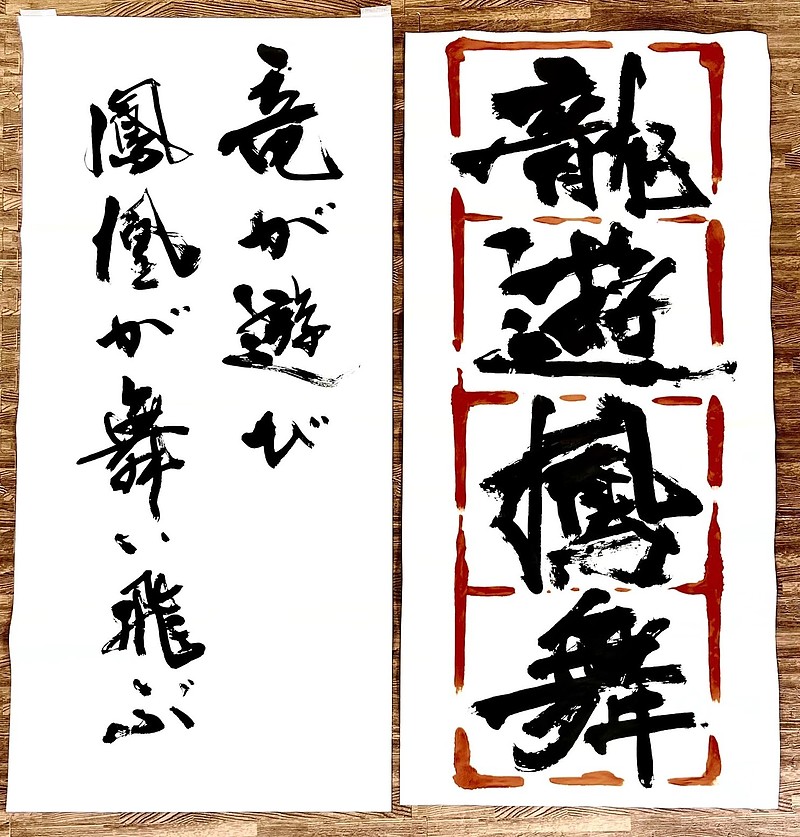 龍遊鳳舞
竜が遊び
鳳凰が舞い飛ぶ